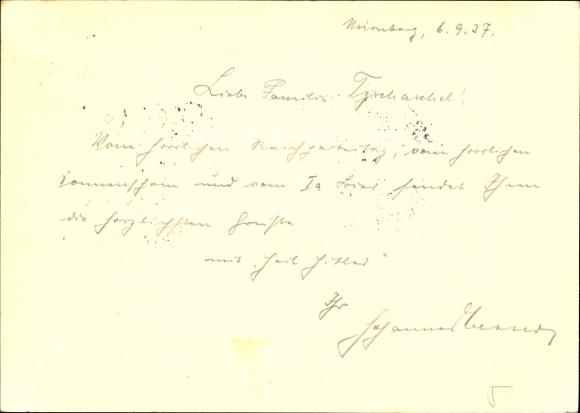 Nürnberg, 6.9.37.
Liebe Familie Tzschaschel!
Vom herrlichen Reichsparteitag, vom herrlichen
Sonnenschein und vom Ia Bier sendet Ihnen
die herzlichsten Grüße
mit „Heil Hitler"
Ihr
Johannes